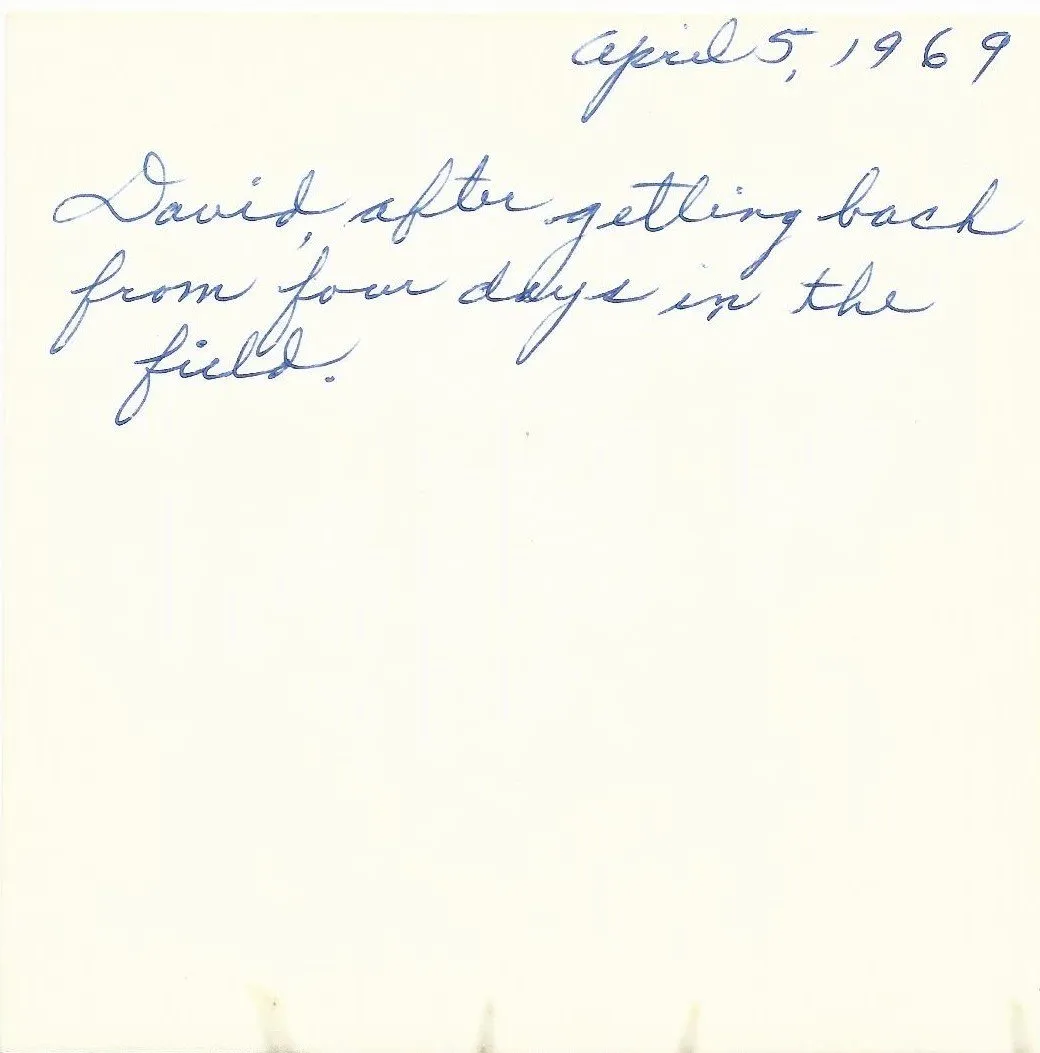 April 5, 1969
David, after getting back
from four days in the
field.